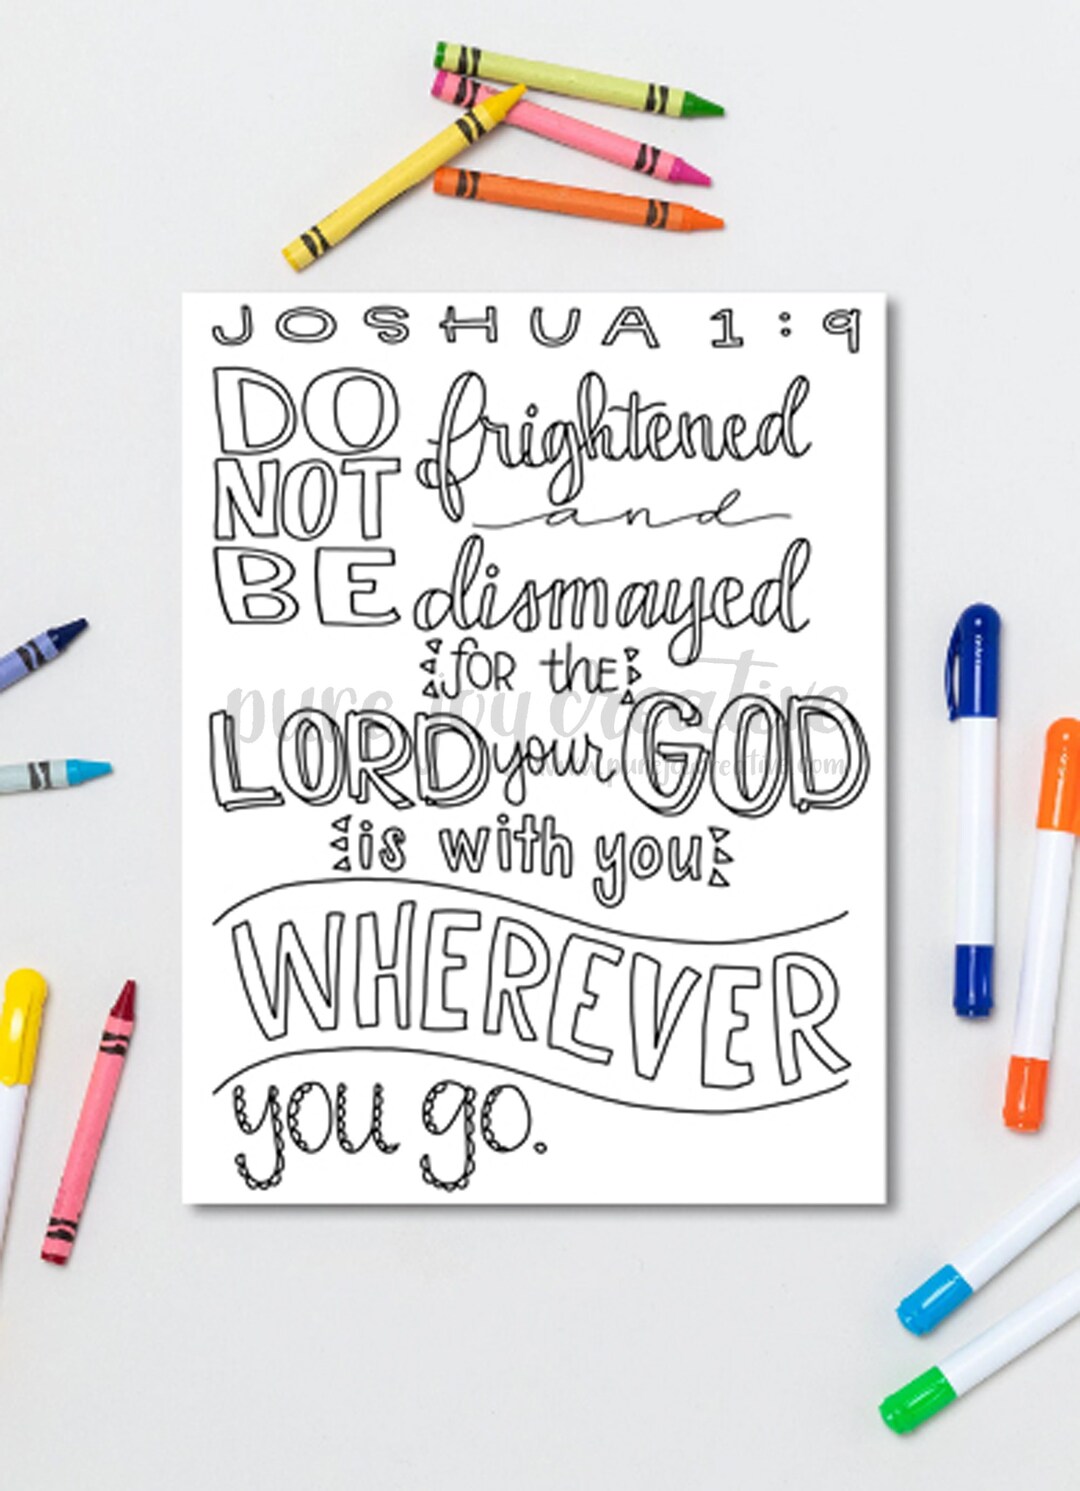 JOSHUA 1:9
DO frightened
NOT
and
BE dismayed
for the
pure joy creative
LORD your GOD
www.purejoycreative.com
is with you
WHEREVER
you go.